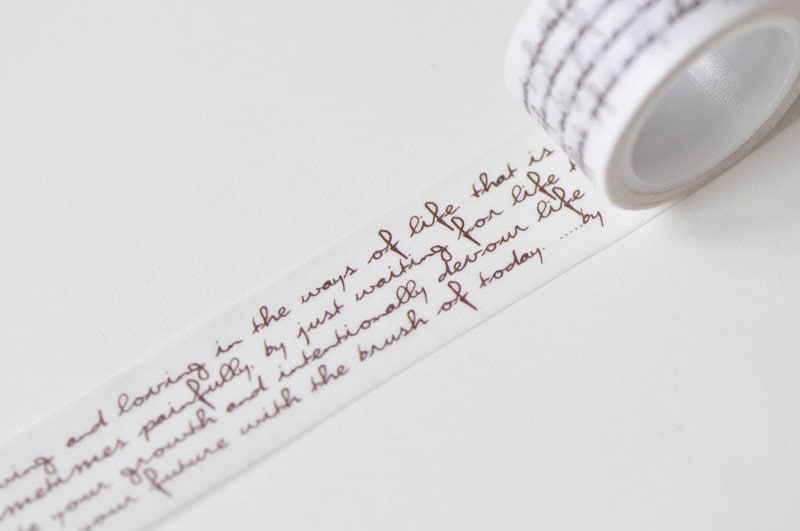 and loving in the ways of life that is
sometimes painfully, by just waiting for life
your growth and intentionally devour life
your future with the brush of today. .....by